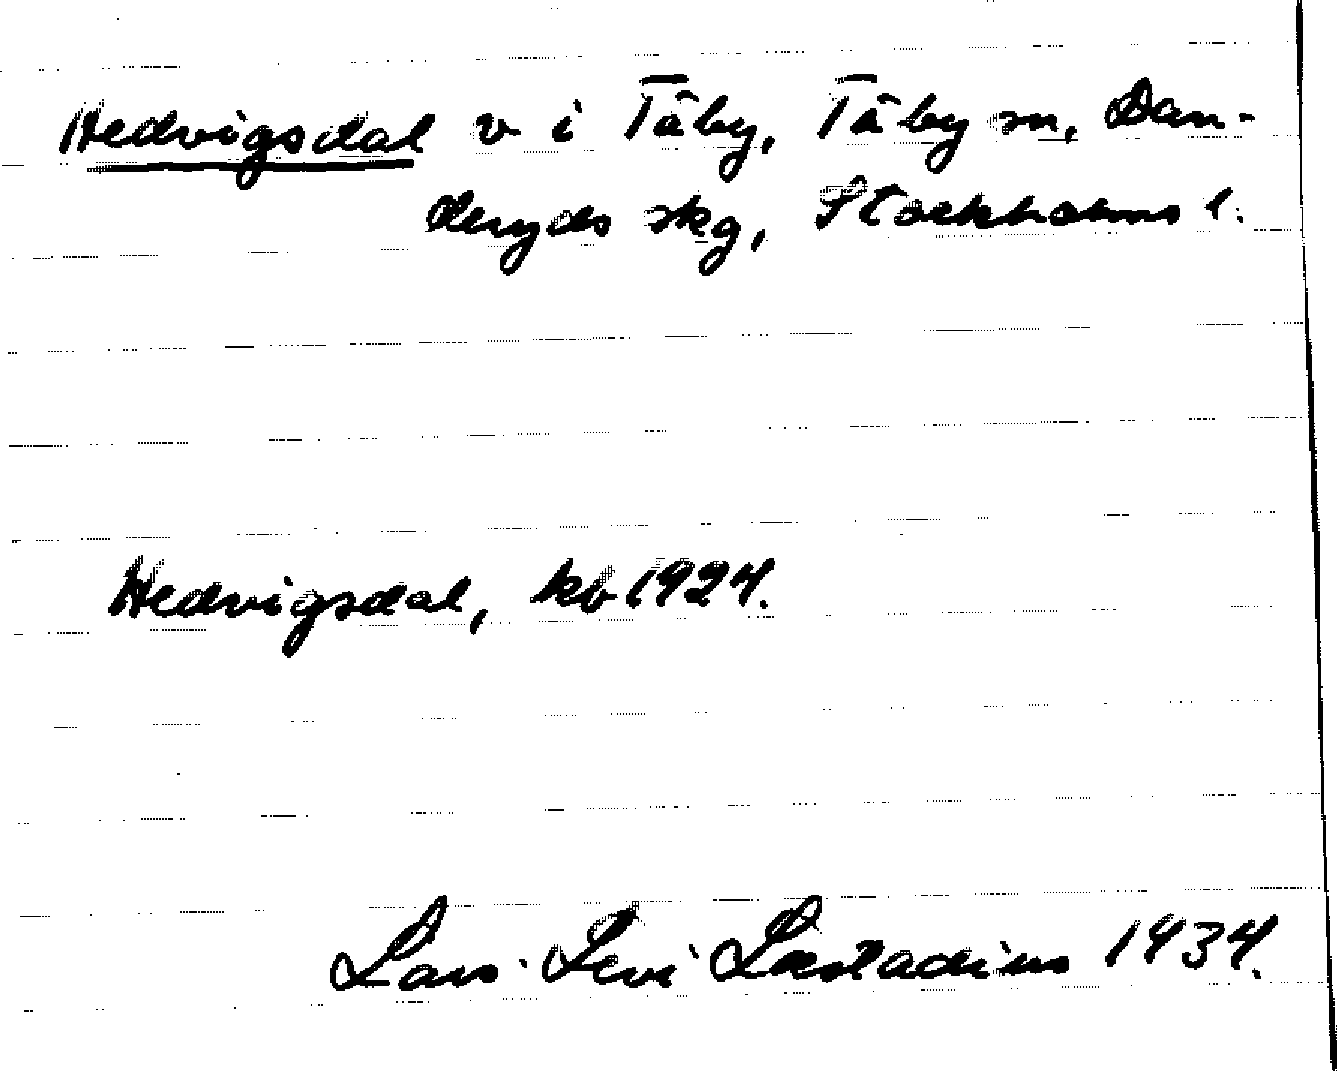 Hedvigsdal v i Täby, Täby sn, Dan-
deryds skg, Stockholms l.
Hedvigsdal, kb 1924.
Lars Levi Læstadius 1934.